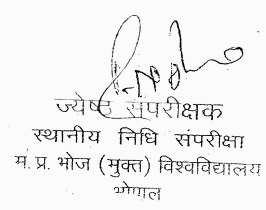 ज्येष्ठ संपरीक्षक
स्थानीय निधि संपरीक्षा
म. प्र. भोज (मुक्त) विश्वविद्यालय
भोपाल